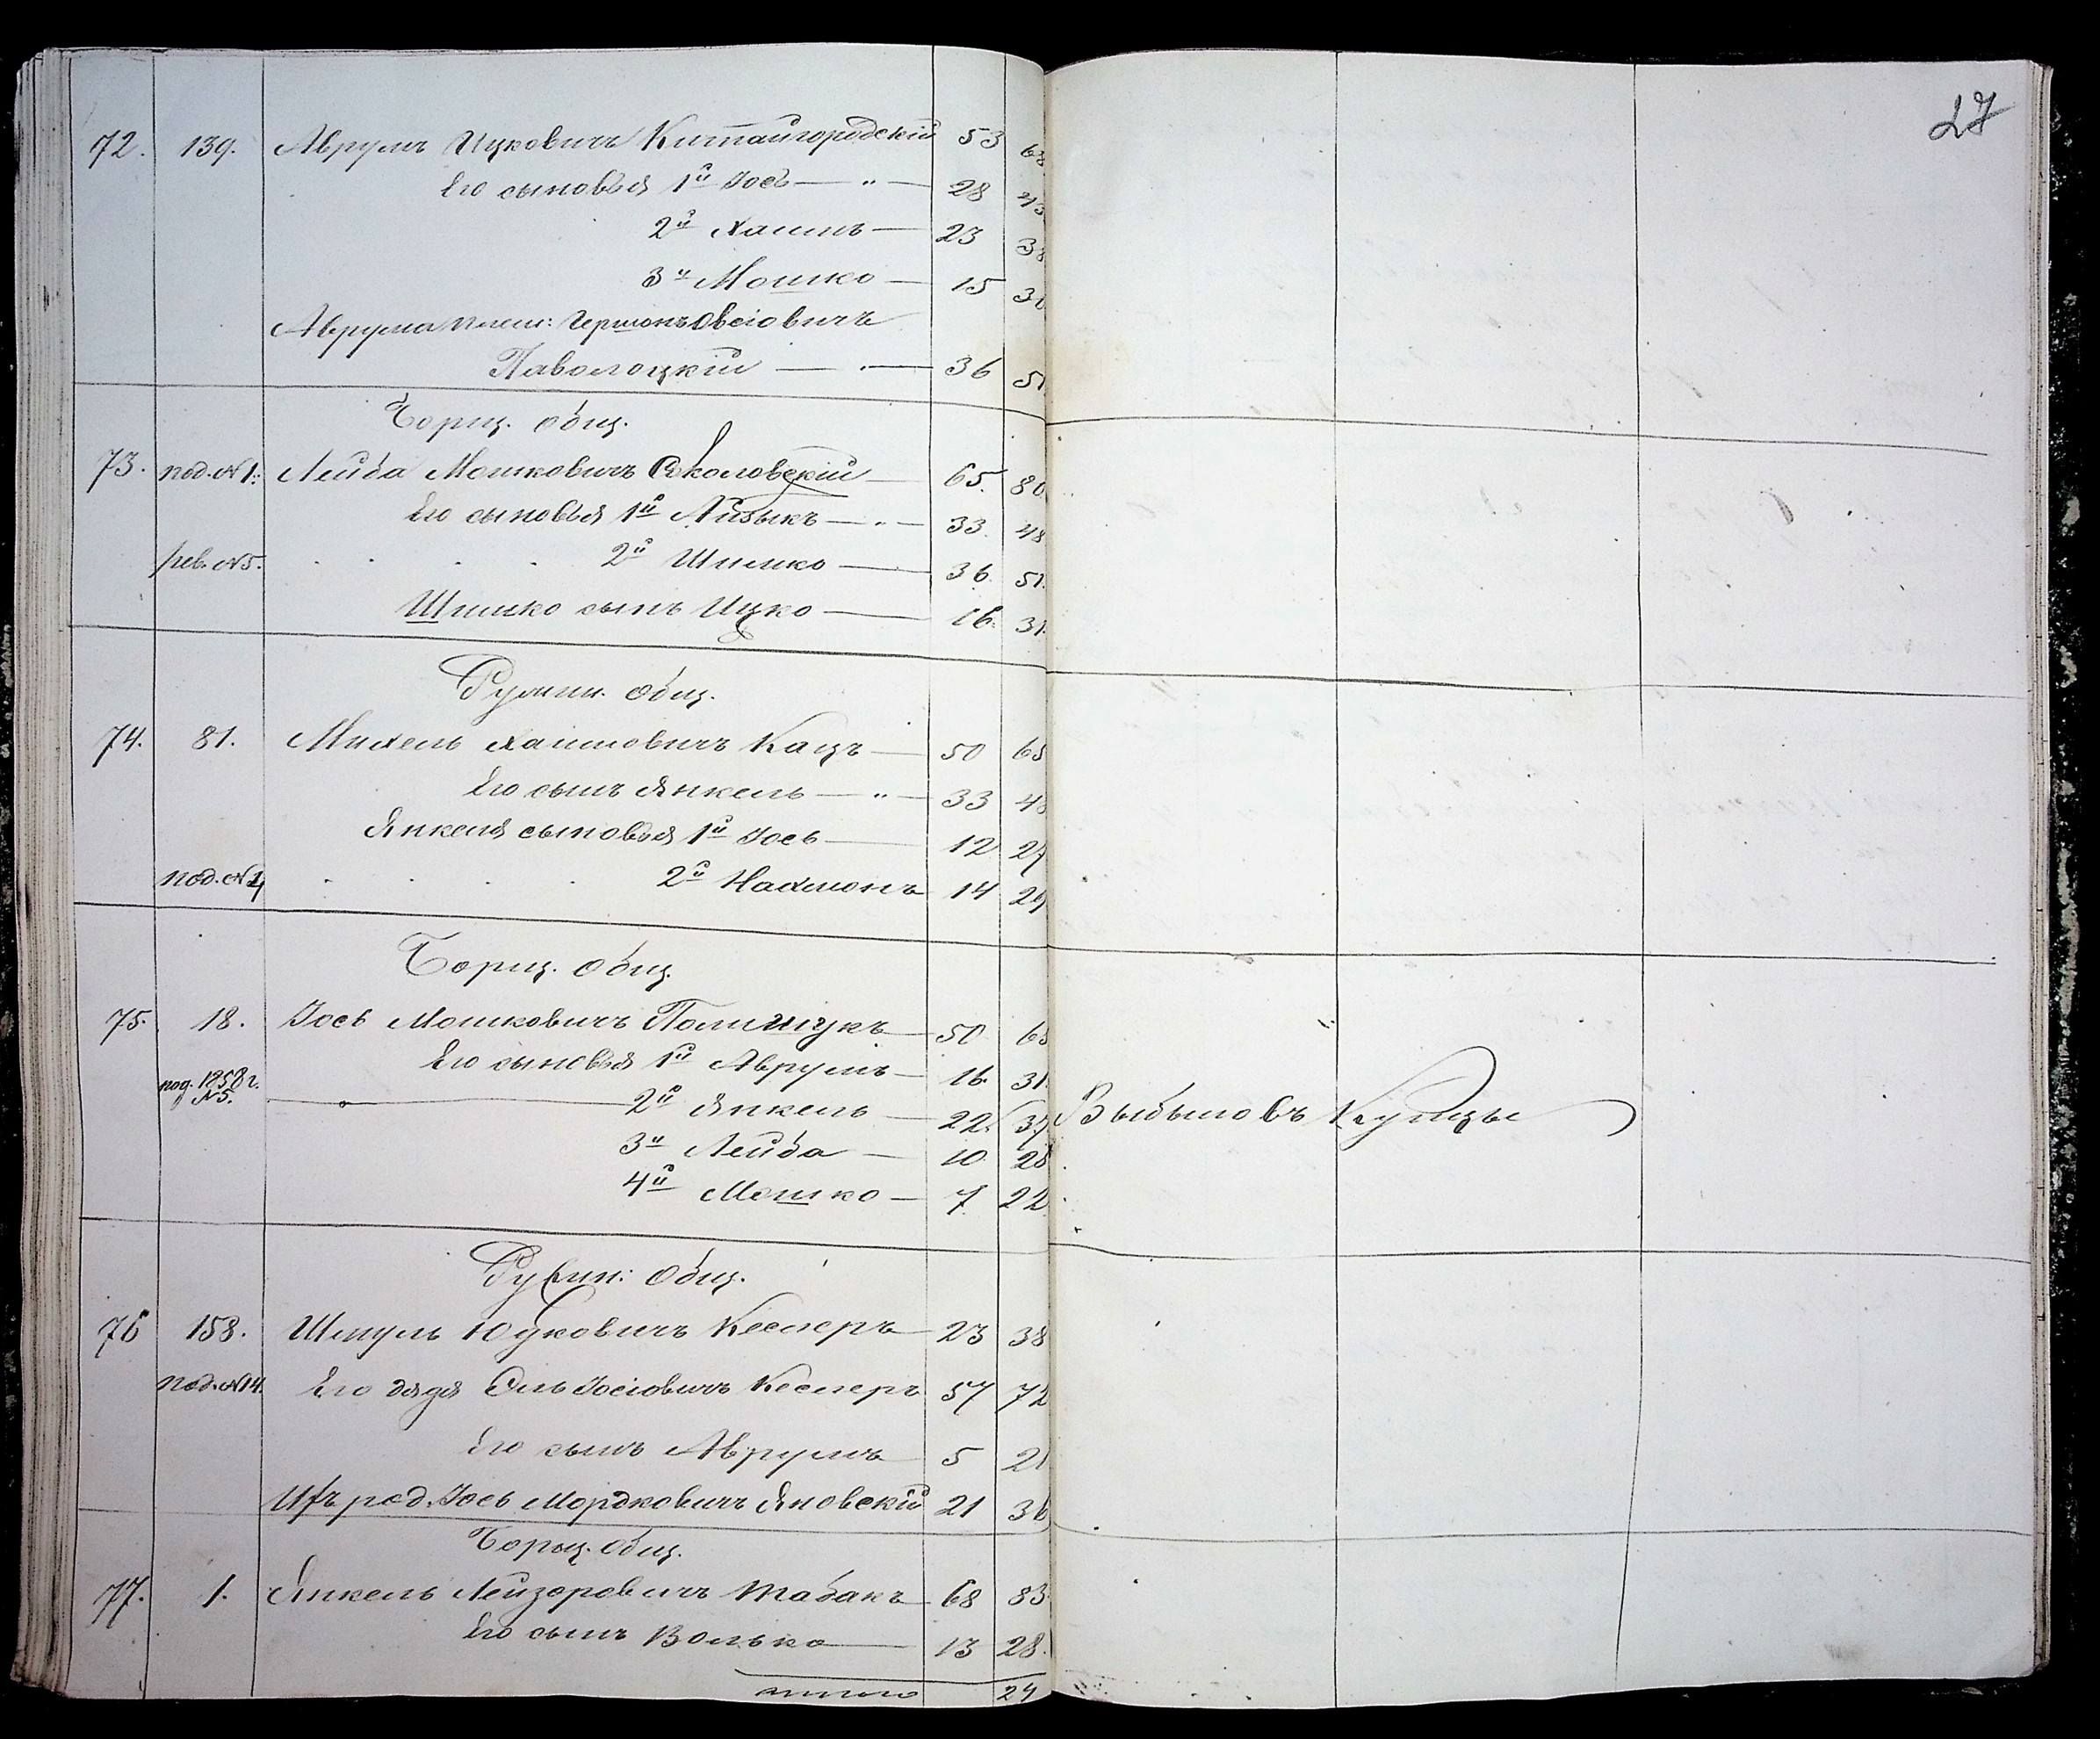 27
72. 139. Аврумъ Ицковичъ Китайгородскій 53 68
Его сыновья 1й Іось — " — 28 43
2й Хаимъ — 23 38
3й Мошко — 15 30
Аврума плем: Гершонъ Овсіовичъ
Паволоцкій — 36 51
Борщ. общ.
73. под. №1: Лейба Мошковичъ Соколовскій — 65. 80
Его сыновья 1й Айзыкъ — " — 33. 48
рев. №5. 2й Шимко — 36. 51.
Шимко сынъ Ицко — 16. 31.
Ружин. общ.
74. 81. Михель Хаимовичъ Кацъ — 50 65
Его сынъ Янкель — " — 33 48
Янкеля сыновья 1й Іось — 12 27
под. № 2й Нахмонъ 14 29
Борщ. общ.
75. 18. Іось Мошковичъ Полищукъ — 50 65
Его сыновья 1й Аврумъ — 16. 31.
под. 1858 г.
№5. 2й Янкель — 22. 37. Выбыло въ Купцы
3й Лейба — 10. 25
4й Мошко — 7. 22
Ружин: общ.
76 158. Шмуль Юдковичъ Кеслеръ — 23 38
под. №14. Его дядя Эль Іосіовичъ Кеслеръ 57 72
Его сынъ Аврумъ 5 21
Ихъ род. Іось Мордковичъ Яновскій 21 36
Борщ. общ.
77. 1. Янкель Лейзоровичъ Табакъ — 68 83
Его сынъ Волько — 13 28.
итого 24